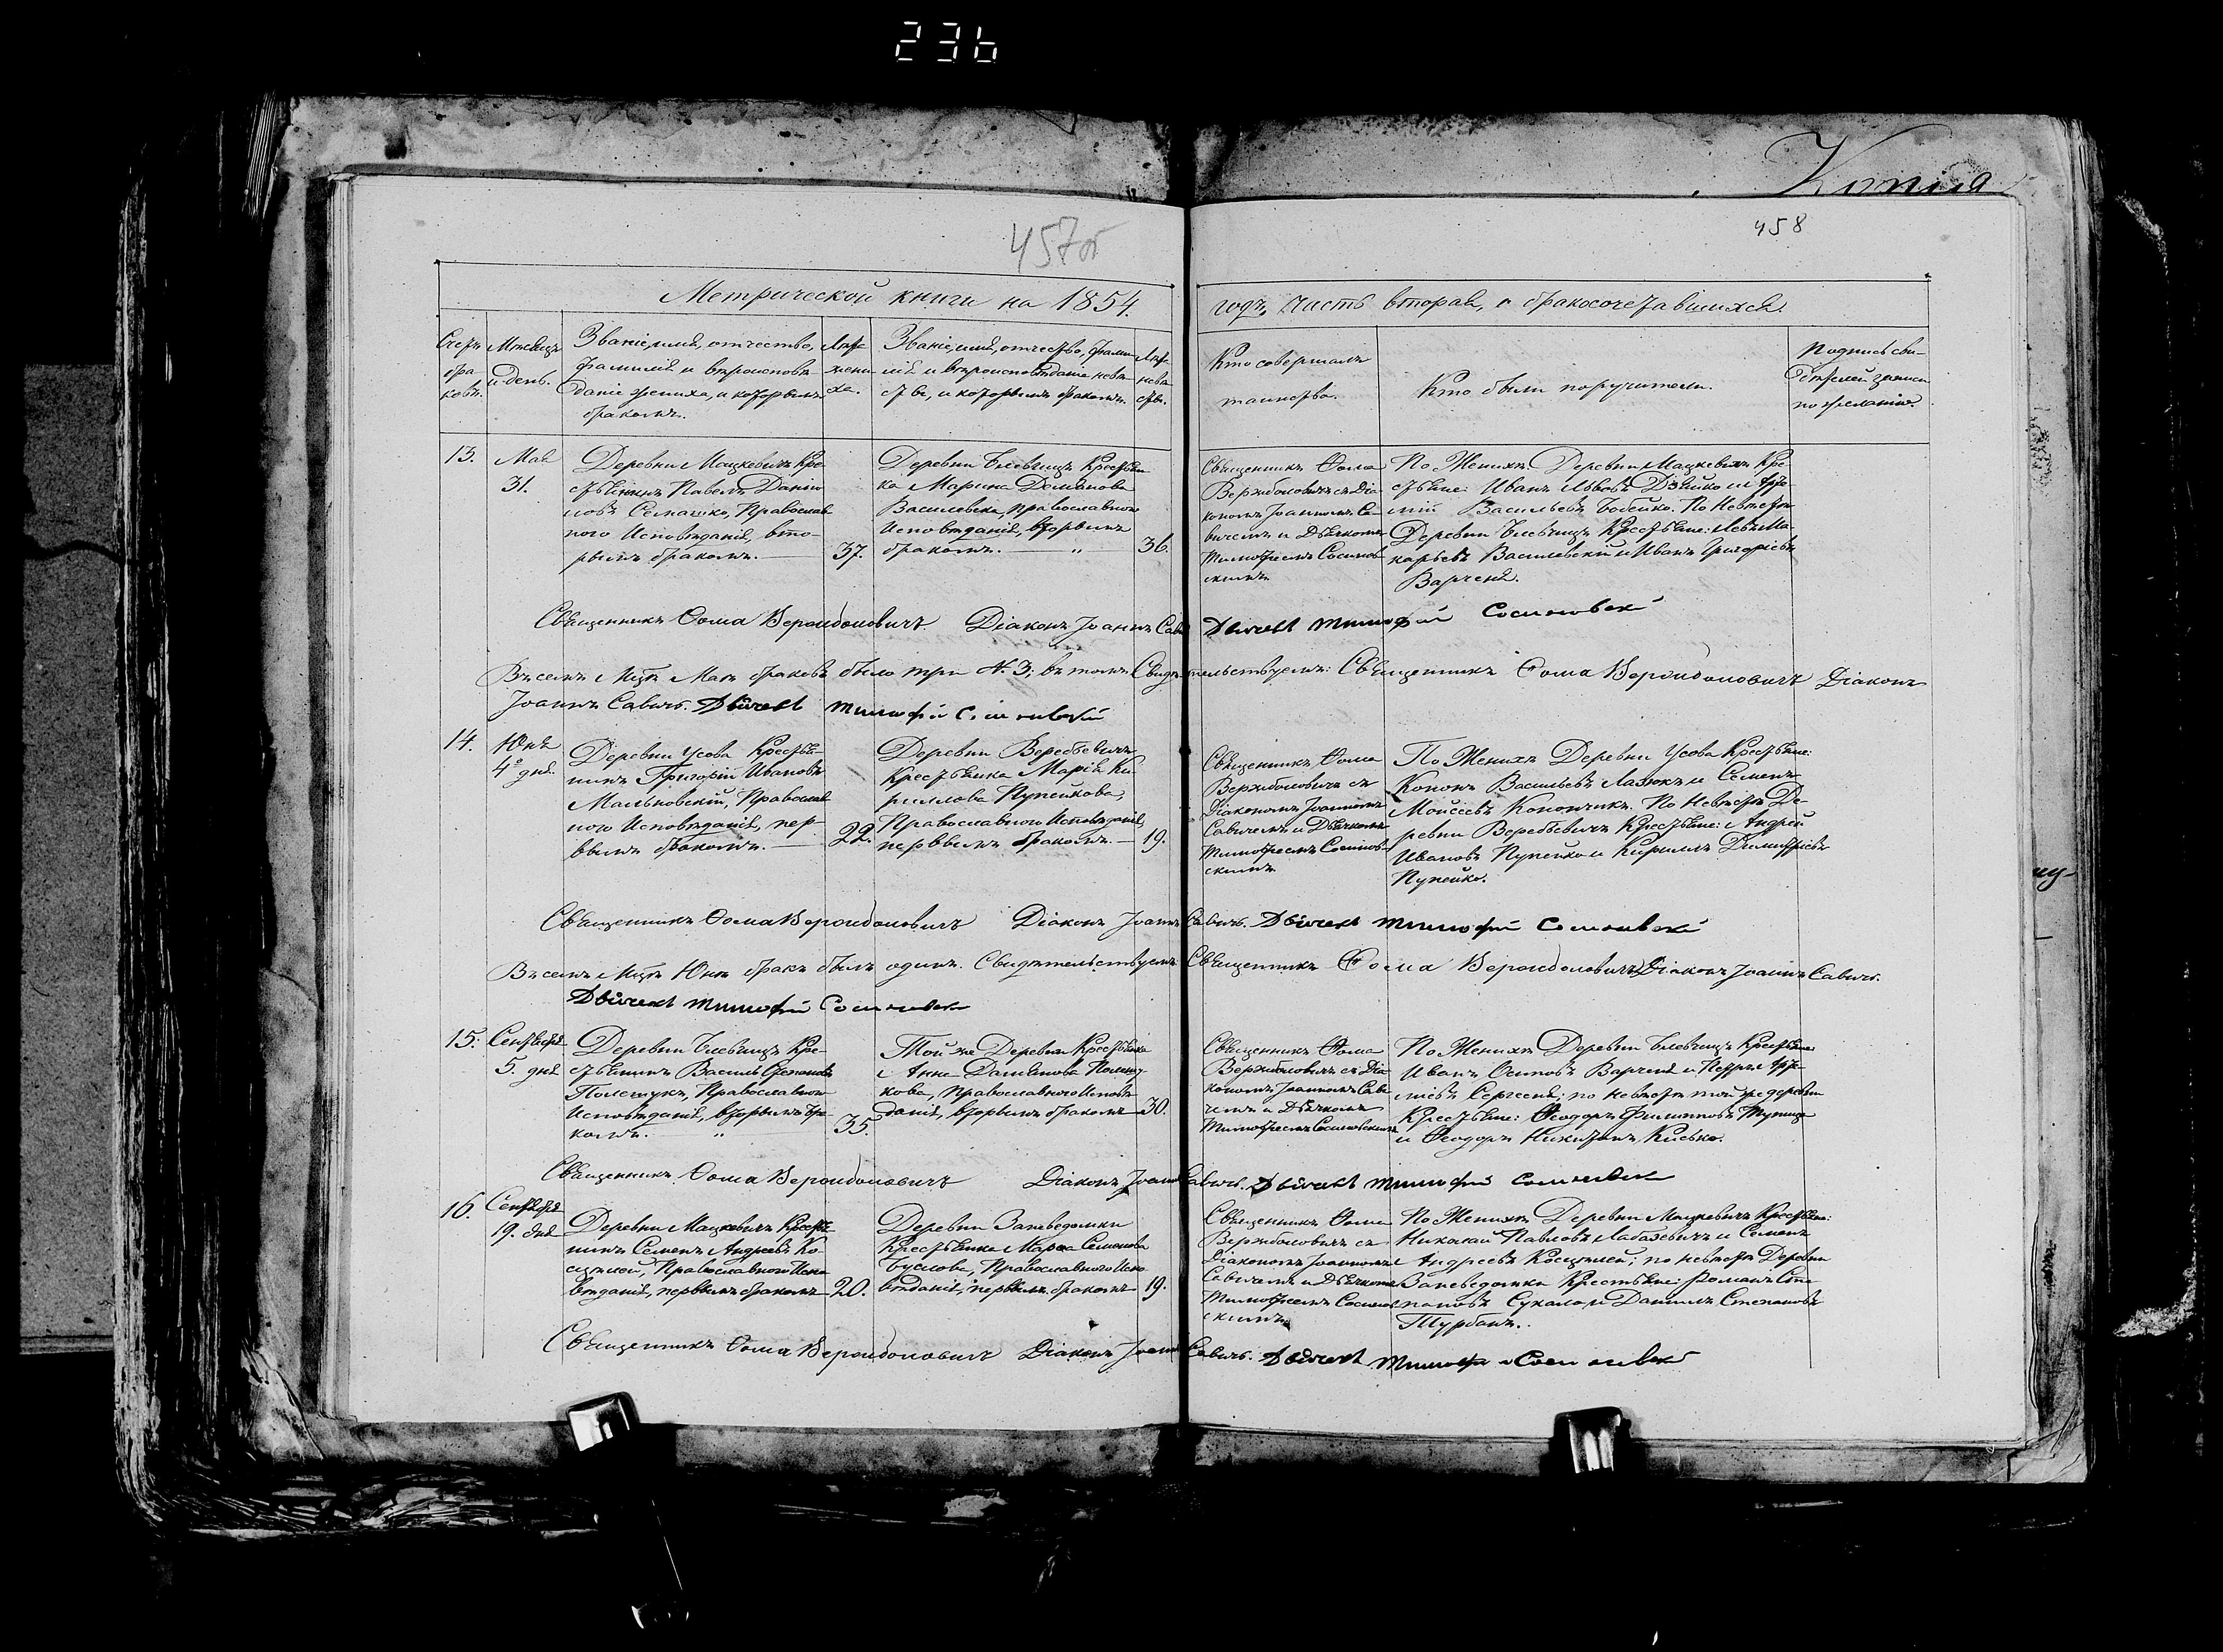 236
Копия
457об
458
Метрической книги на 1854.
годъ, часть вторая, о бракосочетавшихся.
Счетъ
бра-
ковъ.
Мѣсяцъ
и день.
Званіе, имя, отчество,
фамилія и вѣроисповѣ-
даніе жениха, и которымъ
бракомъ.
Лѣта
жени-
ха.
Званіе, имя, отчество, фами-
лія и вѣроисповѣданіе невѣ-
сты, и которымъ бракомъ.
Лѣта
невѣ-
сты.
Кто совершалъ
таинство.
Кто были поручители.
Подпись сви-
дѣтелей записи
по желанію.
13.
Мая
31.
Деревни Мацкевичъ Кре-
стьянинъ Павелъ Даніи-
ловъ Семашко, Православ-
ного Исповѣданія, вто-
рымъ бракомъ.
37.
Деревни Блевчицъ Крестьян-
ка Марина Демьянова
Василевска, православного
Исповѣданія, вторымъ
бракомъ. "
36.
Священникъ Ѳома
Вержболовичъ съ Діа-
кономъ Іоанномъ Са-
вичемъ и Дьячкомъ
Тимоѳеемъ Сосинов-
скимъ
По Женихѣ Деревни Мацкевичъ Кре-
стьяне: Иванъ Львовъ Дзейко и Арте-
мій Васильевъ Бобейко. По Невѣстѣ
Деревни Блевчицъ Крестьяне: Левъ Ма-
карьевъ Василевскій и Иванъ Григорьевъ
Варченя.
Священникъ Ѳома Вержболовичъ. Діаконъ Іоаннъ Савичъ Дьячекъ Тимофей Сосиновскій
Въ семъ Мцѣ Маѣ браковъ было три №. 3; въ томъ Свидѣтельствуемъ: Священникъ Ѳома Вержболовичъ Діаконъ
Іоаннъ Савичъ. Дьячекъ Тимофей Сосиновскій
14.
Юня
4º дня.
Деревни Усова Крестья-
нинъ Григорій Ивановъ
Мальновскій, Православ-
ного Исповѣданія, пер-
ввымъ бракомъ.
22.
Деревни Веребьевичъ
Крестьянка Марія Ки-
риллова Пупейкова,
Православного Исповѣданія,
перввымъ бракомъ.
19.
Священникъ Ѳома
Вержболовичъ съ
Діакономъ Іоанномъ
Савичемъ и Дьячкомъ
Тимоѳеемъ Сосинов-
скимъ
По Женихѣ Деревни Усова Крестьяне:
Кононъ Васильевъ Лазюкъ и Семенъ
Мойсеевъ Конончикъ. По Невѣстѣ Де-
ревни Веребьевичъ Крестьяне: Андрей
Ивановъ Пупейко и Кириллъ Димитріевъ
Пупейко.
Священникъ Ѳома Вержболовичъ Діаконъ Іоаннъ Савичъ. Дьячекъ Тимофей Сосиновскій
Въ семъ Мцѣ Юнѣ бракъ былъ одинъ. Свидѣтельствуемъ: Священникъ Ѳома Вержболовичъ Діаконъ Іоаннъ Савичъ.
Дьячекъ Тимофей Сосиновскій
15.
Сентября
5. дня
Деревни Блевчицъ Кре-
стьянинъ Василь
Полещукъ, Православного
Исповѣданія, вторымъ бра-
комъ. "
35.
Той же Деревни Крестьянка
Анна Дамьянова
кова, Православного Исповѣ-
данія, вторымъ бракомъ
30.
Священникъ Ѳома
Вержболовичъ съ Діа-
кономъ Іоанномъ Сави-
чемъ и Дьячкомъ
Тимоѳеемъ Сосиновскимъ
По Женихѣ Деревни Блевчицъ Крестьяне:
Иванъ Осиповъ Варченя и Петръ Арте-
міевъ Сергееня; по невѣстѣ той же деревни
Крестьяне: Ѳеодоръ Филипповъ Тупица
и Ѳеодоръ Никитинъ Кисько.
Священникъ Ѳома Вержболовичъ Діаконъ Іоаннъ Савичъ. Дьячекъ Тимофей Сосиновскій
16.
Сентября
19. дня
Деревни Мацкевичъ Крестья-
нинъ Семенъ Андреевъ Ко-
сцялей, Православного Испо-
вѣданія, первымъ бракомъ
20.
Деревни Заневедомки
Крестьянка Марѳа Семенова
Буслова, Православного Испо-
вѣданія, первымъ бракомъ
19.
Священникъ Ѳома
Вержболовичъ съ
Діакономъ Іоанномъ
Савичемъ и Дьячкомъ
Тимоѳеемъ Сосинов-
скимъ
По Женихѣ Деревни Мацкевичъ Крестьяне:
Николай Павловъ Лабазевичъ и Семенъ
Андреевъ Косцялей; по невѣстѣ Деревни
Заневедомка Крестьяне: Романъ Сте-
пановъ Сукало и Даніилъ Степановъ
Турбанъ.
Священникъ Ѳома Вержболовичъ Діаконъ Іоаннъ Савичъ. Дьячекъ Тимофей Сосиновскій